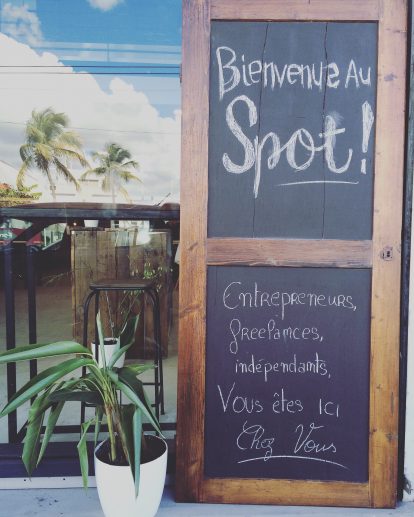 Bienvenue Au
Spot!
Entrepreneurs,
freelances,
indépendants,
Vous êtes ici
Chez Vous